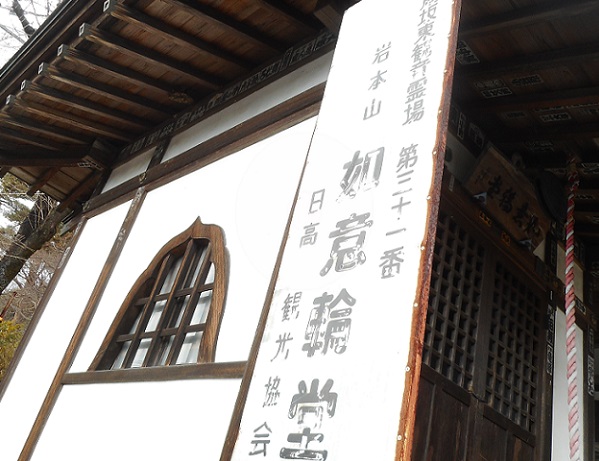 坂東觀音霊場 第三十一番
岩本山 如意輪堂
日高 観光協会